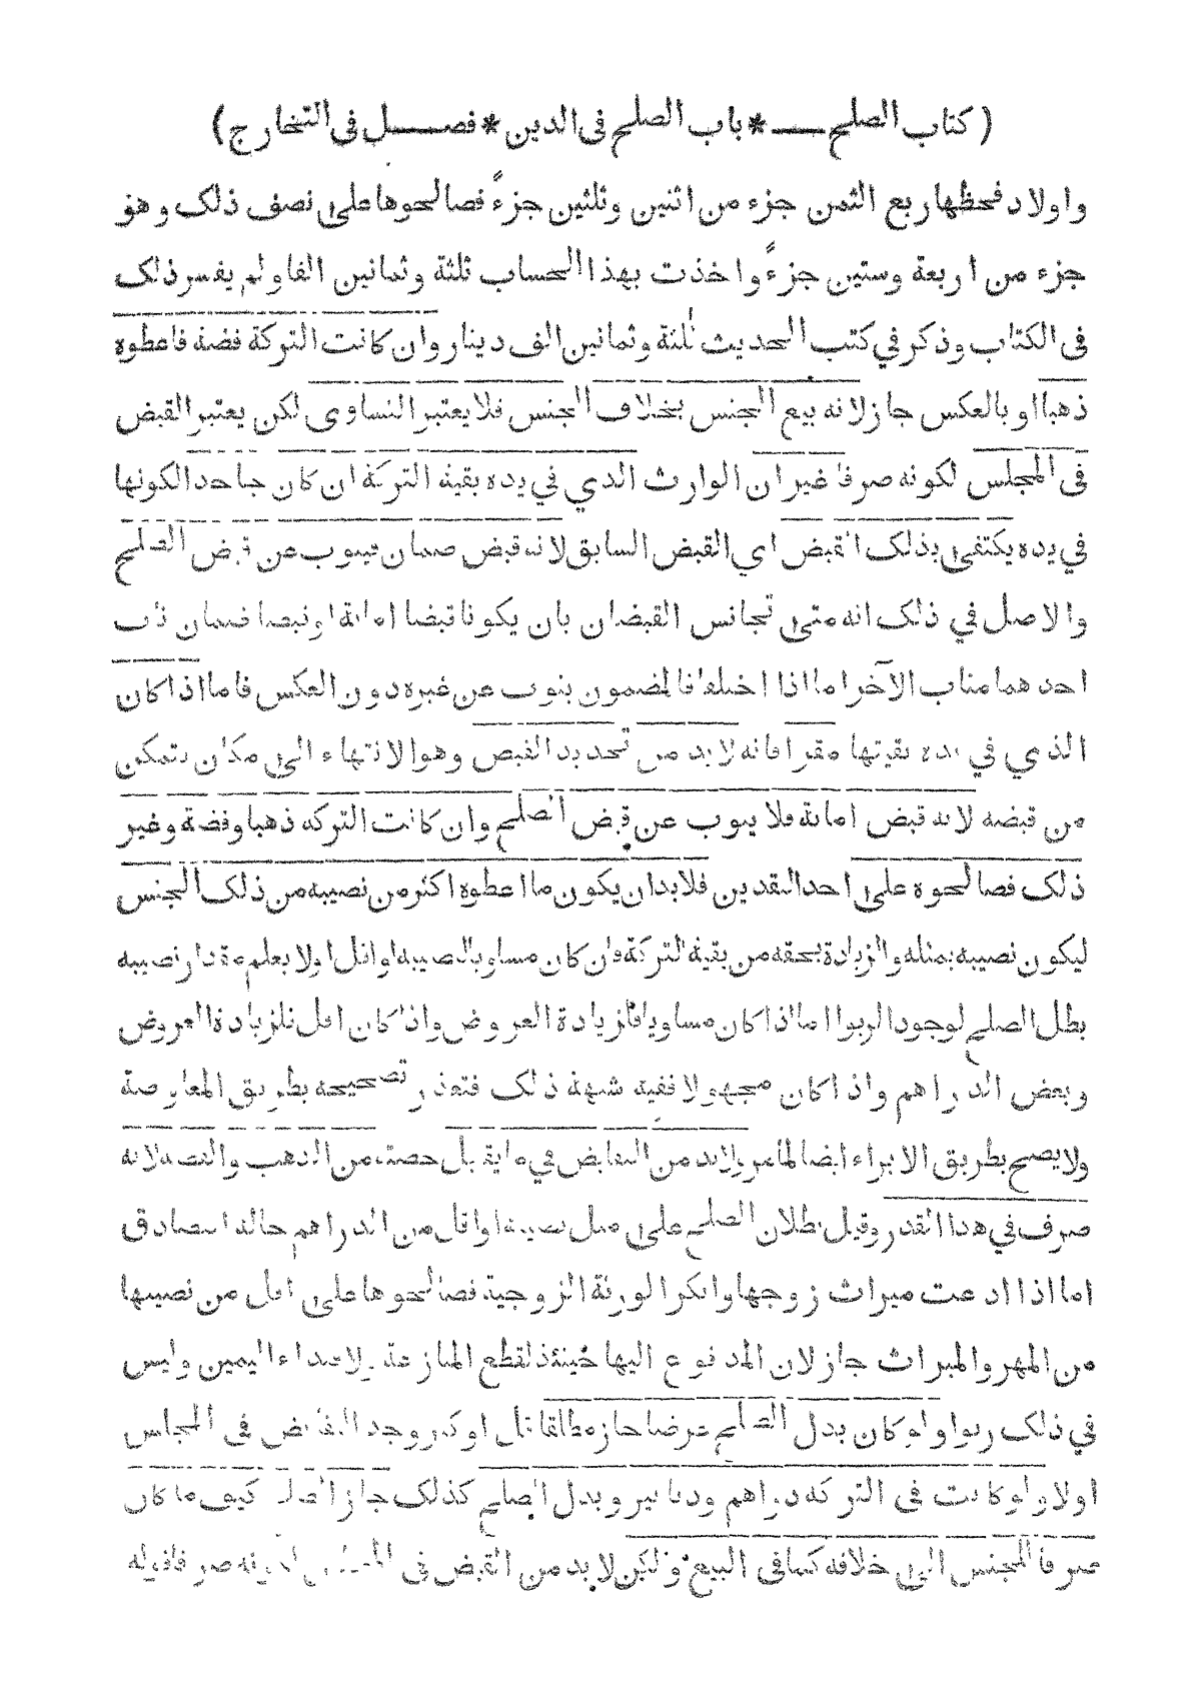 ( كتاب الصلح * باب الصلح فى الدين * فصل فى التخارج )
واولاد فحظها ربع الثمن جزء من اثنين وثلثين جزءً فصالحوها على نصف ذلك وهو
جزء من اربعة وستين جزءً واخذت بهذا الحساب ثلثة وثمانين الفا ولم يفسر ذلك
فى الكتاب وذكر في كتب الحديث ثلثة وثمانين الف دينار وان كانت التركة فضة فاعطوه
ذهبا او بالعكس جاز لانه بيع الجنس بخلاف الجنس فلا يعتبر التساوى لكن يعتبر القبض
فى المجلس لكونه صرفا غير ان الوارث الذي في يده بقية التركة ان كان جاحدا لكونها
في يده يكتفى بذلك القبض اي القبض السابق لانه قبض ضمان فينوب عن قبض الصلح
والاصل في ذلك انه متى تجانس القبضان بان يكونا قبضا امانة او قبضا ضمان ناب
احدهما مناب الآخر اما اذا اختلفا فالمضمون ينوب عن غيره دون العكس فاما اذا كان
الذي في يده بقيتها مقرا فانه لابد من تجديد القبض وهو الانتهاء الى مكان يتمكن
من قبضه لانه قبض امانة فلا ينوب عن قبض الصلح وان كانت التركة ذهبا وفضة وغير
ذلك فصالحوه على احد النقدين فلا بد ان يكون ما اعطوه اكثر من نصيبه من ذلك الجنس
ليكون نصيبه بمثله والزيادة بحقه من بقية التركة وان كان مساويا لنصيبه او اقل او لا يعلم مقدار نصيبه
بطل الصلح لوجود الربوا اما اذا كان مساويا فلزيادة العروض واذا كان اقل فلزيادة العروض
وبعض الدراهم واذا كان مجهولا ففيه شبهة ذلك فتعذر تصحيحه بطريق المعاوضة
ولا يصح بطريق الابراء ايضا لما مر ولابد من التقابض في ما يقابل حصته من الذهب والفضة لانه
صرف في هذا القدر وقيل بطلان الصلح على مثل نصيبه او اقل من الدراهم حالة التصادق
اما اذا ادعت ميراث زوجها وانكر الورثة الزوجية فصالحوها على اقل من نصيبها
من المهر والميراث جاز لان المدفوع اليها حينئذ لقطع المنازعة ولافتداء اليمين وليس
في ذلك ربوا ولو كان بدل الصلح عرضا جاز مطلقا قل او كثر وجد القبض فى المجلس
اولا ولو كانت فى التركة دراهم ودنانير وبدل الصلح كذلك جاز الصلح كيف ما كان
صرفا للجنس الى خلافه كما فى البيع ولكن لا بد من القبض فى المجلس لكونه صرفا قوله